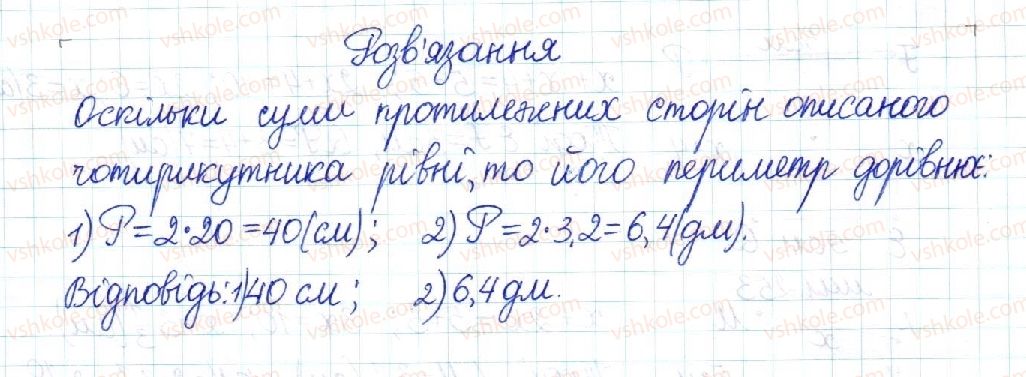 Розв'язання
Оскільки суми протилежних сторін описаного
чотирикутника рівні, то його периметр дорівнює:
1) P = 2·20 = 40 (см); 2) P = 2·3,2 = 6,4 (дм).
Відповідь: 1) 40 см; 2) 6,4 дм.